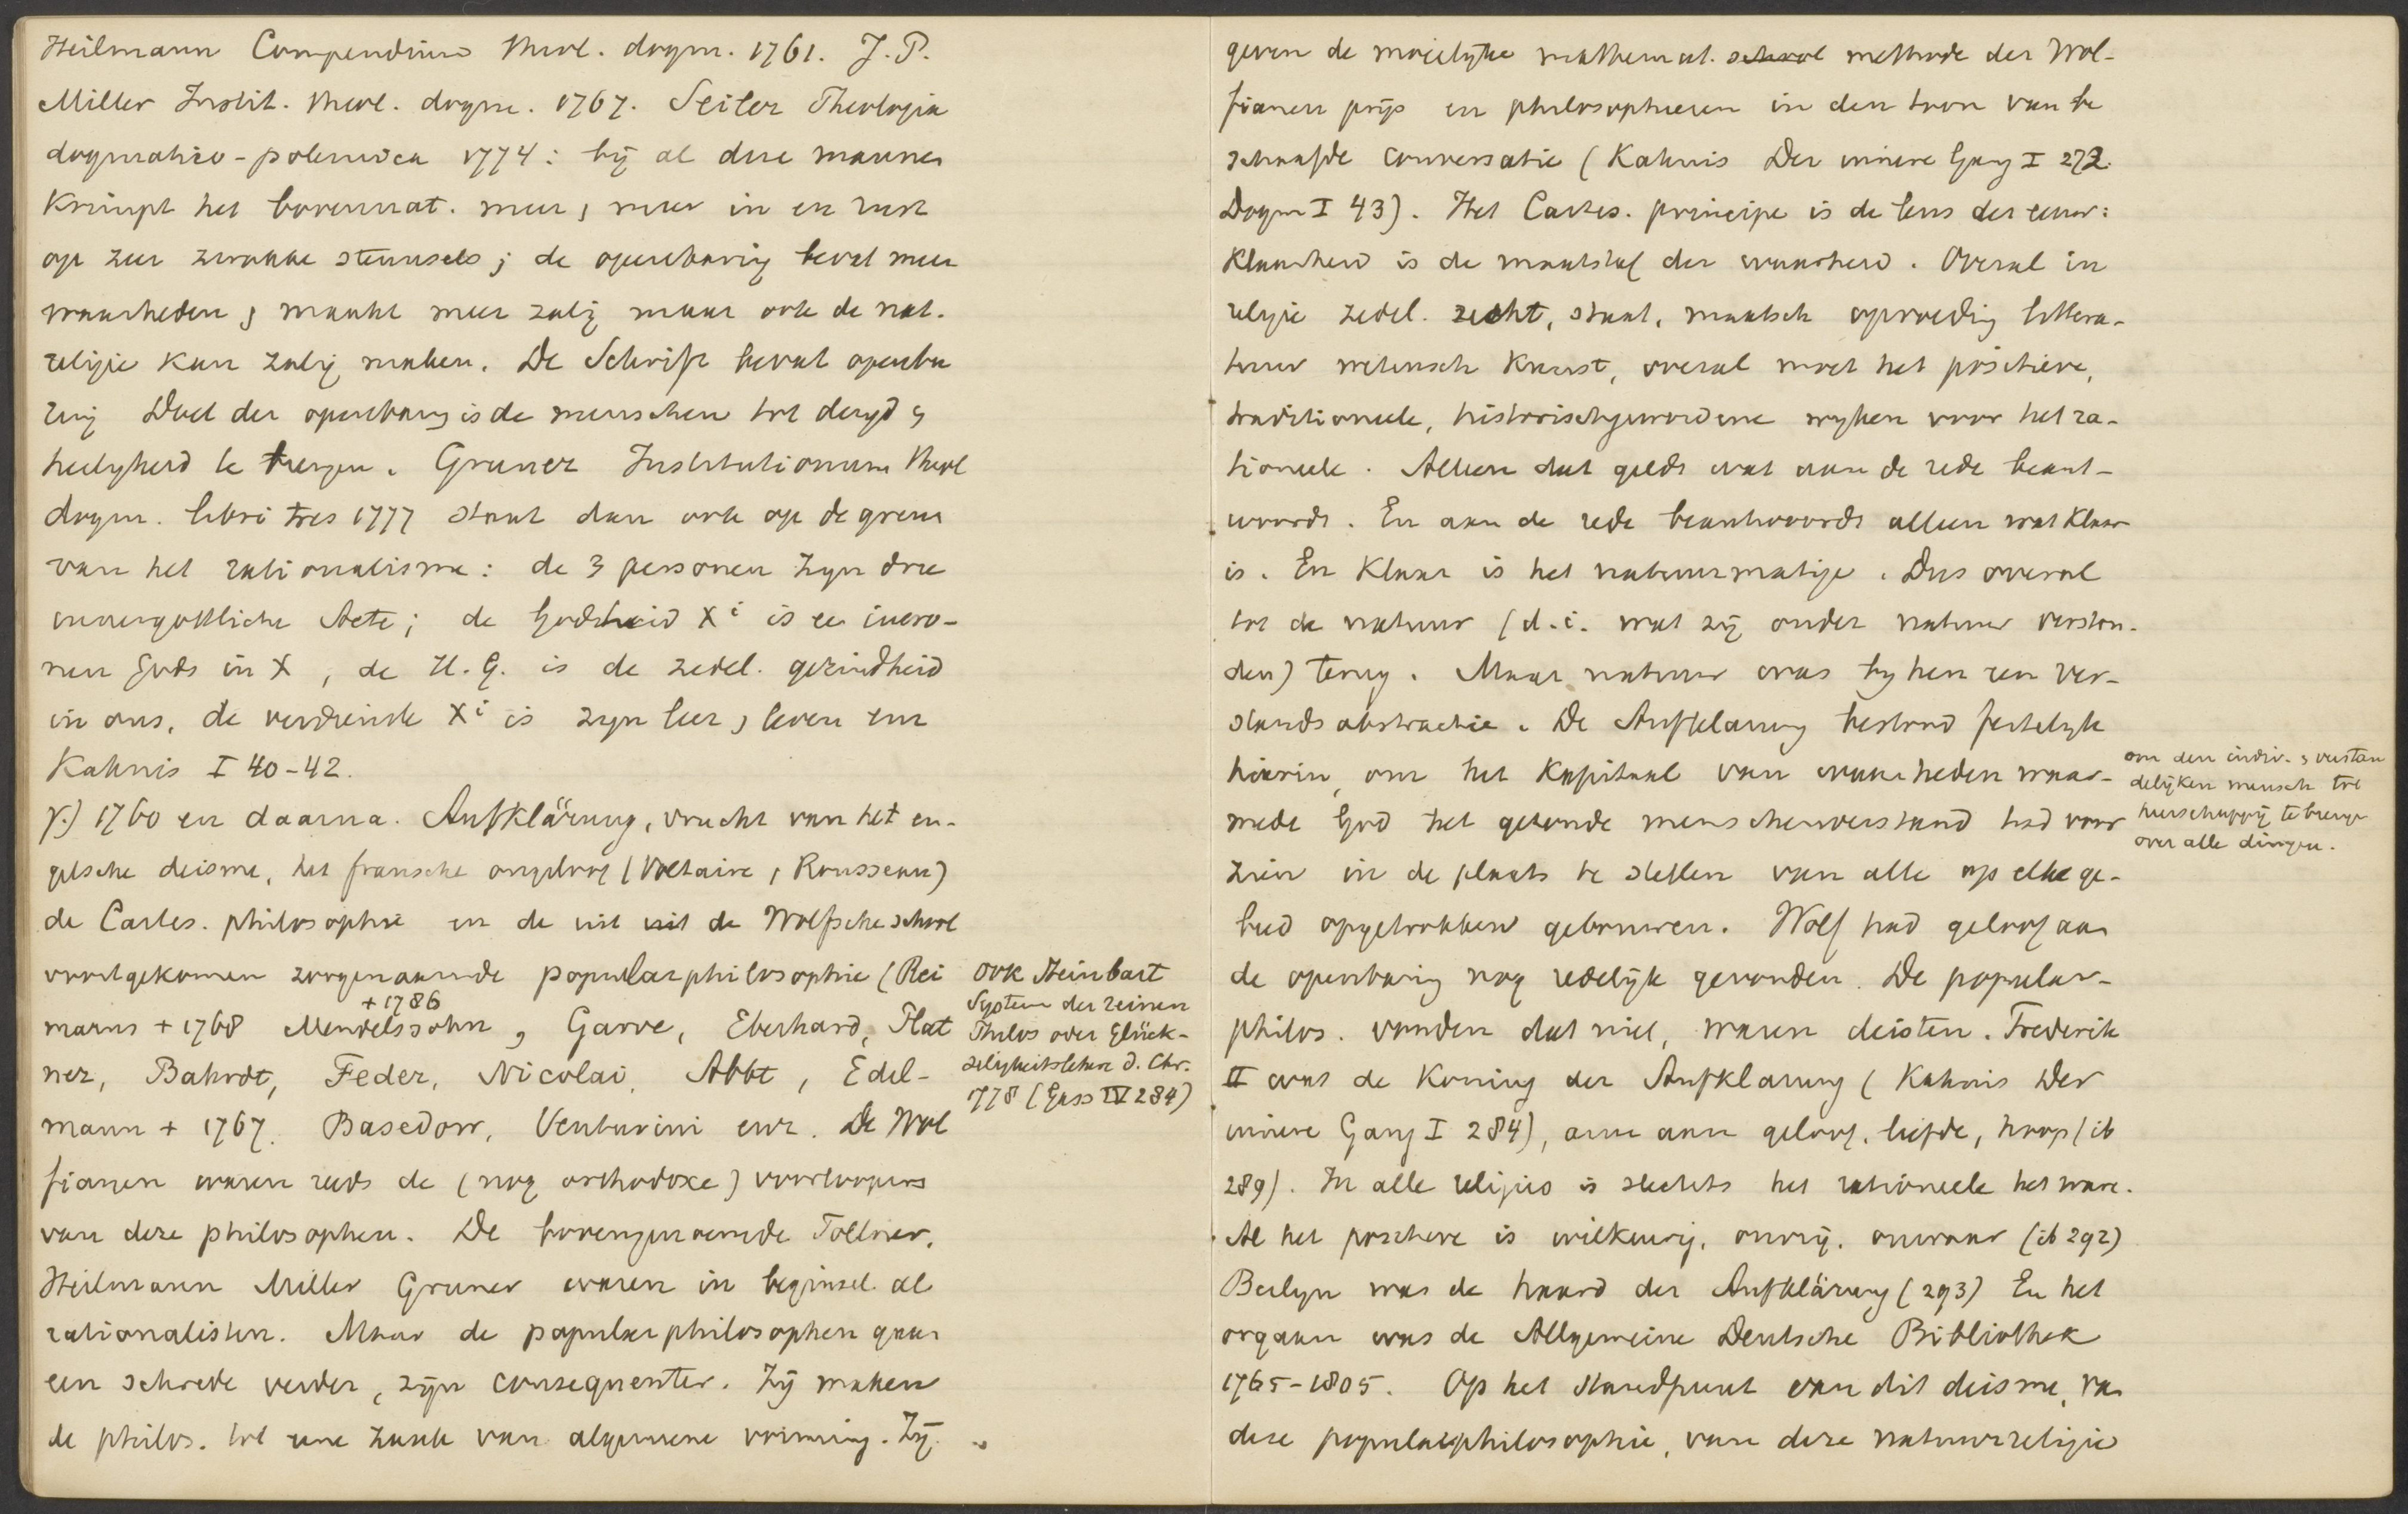 Heilmann Compendium theol. dogm. 1761. J. P.
Miller Instit. theol. dogm. 1767. Seiler Theologia
dogmatico-polemica 1774: bij al deze mannen
krimpt het bovennat. meer, meer in en rust
op zeer zwakke steunsels; de openbaring bevat meer
waarheden, maakt meer zalig maar ook de nat.
religie kan zalig maken. De Schrift bevat openba
ring Doel der openbaring is de menschen tot deugd &
heiligheid te brengen. Gruner Institutionum theol
dogm. libri tres 1777 staat dan ook op de grens
van het rationalisme: de 3 personen zyn drie
innergöttliche Acte; de Godheid Xi is een inwo-
nen Gods in X, de H. G. is de zedel. gezindheid
in ons, de verdienste Xi is zyn leer, leven enz
Kahnis I 40-42.
γ.) 1760 en daarna. Aufklärung, vrucht van het en-
gelsche deisme, het fransche ongeloof (Voltaire, Rousseau)
de Cartes. philosophie en de uit de Wolfsche school
voortgekomen zoogenaamde popularphilosophie (Rei
marus + 1768 Mendelssohn + 1786, Garve, Eberhard, Plat
ner, Bahrdt, Feder, Nicolai, Abbt, Edel-
mann + 1767. Basedow, Venturini enz. De Wol
fianen waren reeds de (nog orthodoxe) voorloopers
van deze philosophen. De bovengenoemde Töllner,
Heilmann Miller Gruner waren in beginsel al
rationalisten. Maar de popularphilosophen gaan
een schrede verder, zijn consequenter. Zij maken
de philos. tot eene zaak van algemeene vorming. Zij
ook Steinbart
System der reinen
Philos oder Glück-
seligkeitslehre d. Chr.
778 (Gass IV 284)
geven de moeielyke mathemat. school methode der Wol-
fianen prijs en philosopheren in den toon van be
schaafde conversatie (Kahnis Der innere Gang I 272.
Dogm I 43). Het Cartes. principe is de leus der eeuw:
klaarheid is de maatstaf der waarheid. Overal in
religie zedel. recht, staat, maatsch opvoeding littera-
tuur wetensch kunst, overal moet het positieve,
traditioneele, historischgewordene wyken voor het ra-
tioneele. Alleen dat geldt wat aan de rede beant-
woordt. En aan de rede beantwoordt alleen wat klaar
is. En klaar is het natuurmatige. Dus overal
tot de natuur (d.i. wat zij onder natuur verston-
den) terug. Maar natuur was by hen een ver-
standsabstractie. De Aufklarung bestond feitelyk
hierin, om het kapitaal van waarheden waar-
mede God het gezonde menschenverstand had voor
zien in de plaats te stellen van alle op elk ge-
bied opgetrokken gebouwen. Wolf had geloof aan
de openbaring nog redelijk gevonden. De popular-
philos. vonden dat niet, waren deisten. Frederik
II was de koning der Aufklarung (Kahnis Der
innere Gang I 284), arm aan geloof, liefde, hoop (ib
289). In alle religies is slechts het rationeele het ware.
Al het positieve is willekeurig, onvrij, onwaar (ib 292)
Berlyn was de haard der Aufklärung (293) En het
orgaan was de Allgemeine Deutsche Bibliothek
1765-1805. Op het standpunt van dit deisme, van
deze popularphilosophie, van deze natuurreligie
om den indiv. & verstan
delijken mensch tot
heerschappij te brengen
over alle dingen.